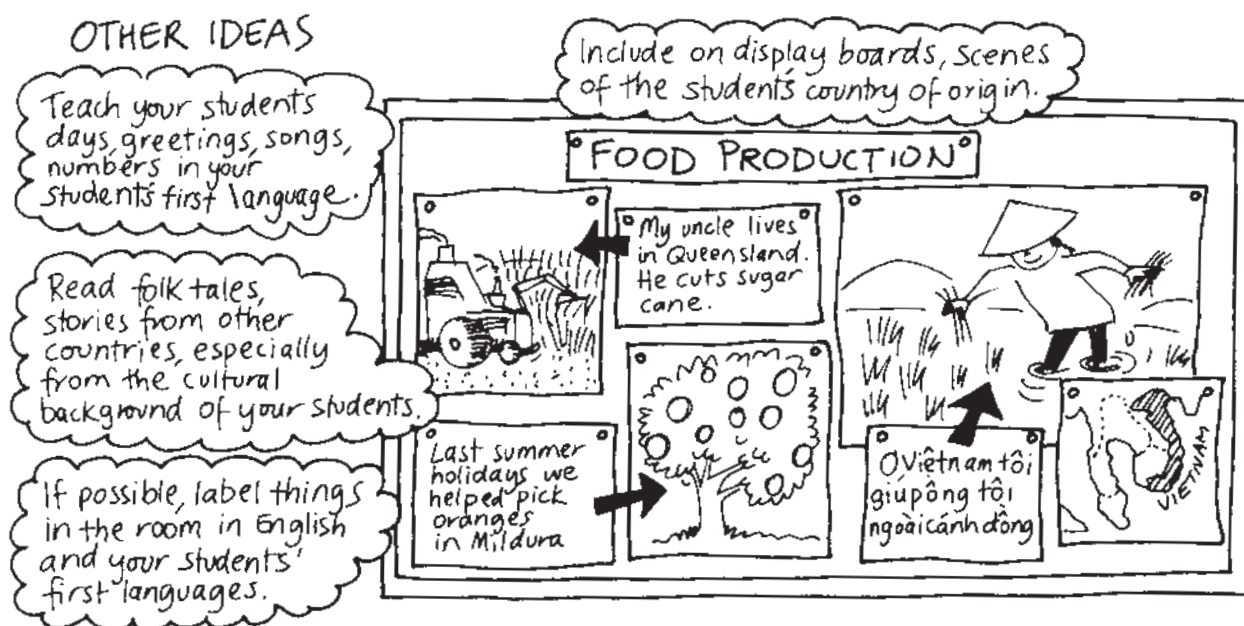 OTHER IDEAS
Teach your students
days, greetings, songs,
numbers in your
student's first language.
Read folk tales,
stories from other
countries, especially
from the cultural
background of your students.
If possible, label things
in the room in English
and your students'
first languages.
Include on display boards, scenes
of the student's country of origin.
FOOD PRODUCTION
My uncle lives
in Queensland.
He cuts sugar
cane.
Last summer
holidays we
helped pick
oranges
in Mildura
Ở Việtnam tôi
giúpông tôi
ngoàicánhđồng
VIETNAM